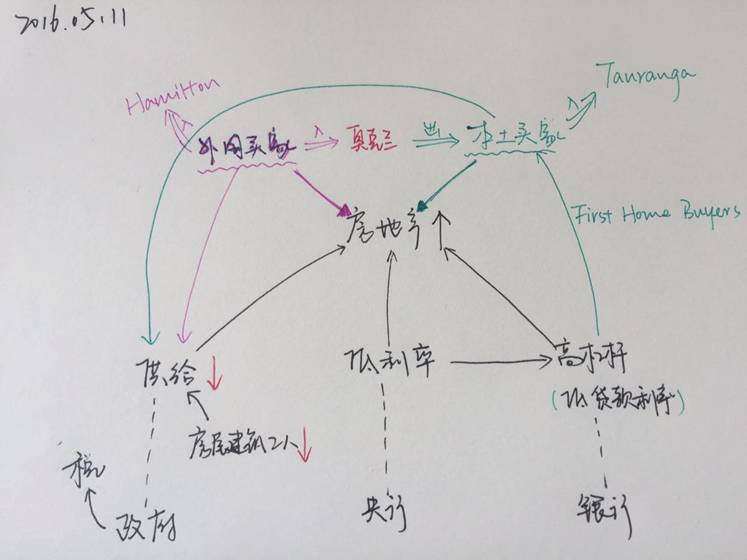 2016.05.11
Hamilton
Tauranga
外国买家 入 奥克兰 出 本土买家 入
房地产 ↑
First Home Buyers
供给 ↓
低利率
高杠杆
(低贷款利率)
房屋建筑工人 ↓
税
政府
央行
银行